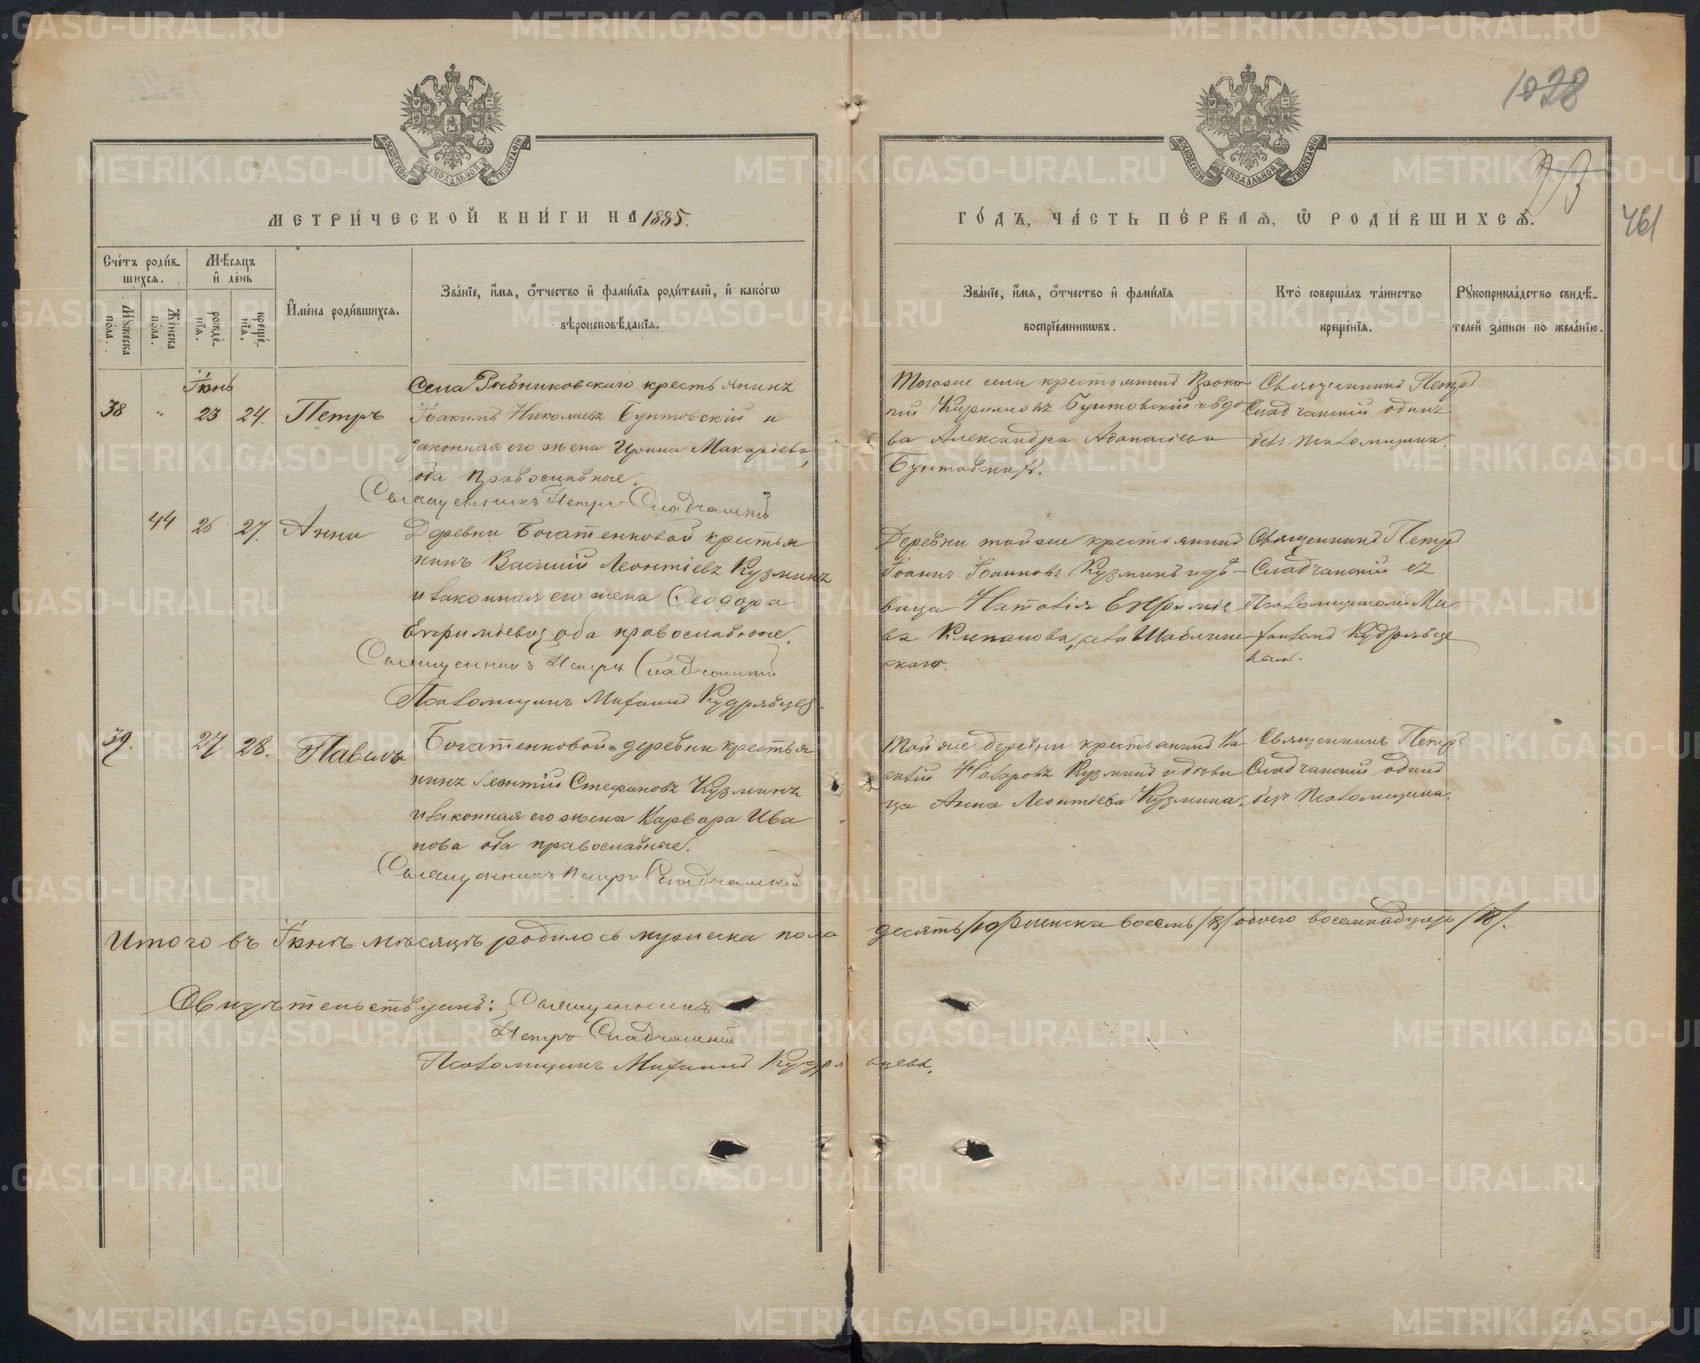 1028
461
МЕТРИ́ЧЕСКОЙ КНИ́ГИ НА 1885.
ГО́ДЪ, ЧА́СТЬ ПЕ́РВАЯ, Ѿ РОДИ́ВШИХСѦ.
Сче́тъ роди́вшихся.
Мѣ́сяцъ и де́нь
Мꙋ́жеска по́ла.
Же́нска по́ла.
рожде́нїя.
креще́нїя.
И҆мена̀ роди́вшихся.
Зва́нїе, и҆́мя, ѻ҆́тчество и҆ фами́лїя роди́телей, и҆ како́гѡ
вѣроисповѣ́данїя.
Зва́нїе, и҆́мя, ѻ҆́тчество и҆ фами́лїя
воспрїе́мникѡвъ.
Кто̀ соверша́лъ та́инство
креще́нїя.
Рꙋкоприкла́дство свидѣ́телей за́писи по жела́нїю.
Іюнь
38 " 23 24. Петръ
Села Рыбниковскаго крестьянинъ
Іоакимъ Николаевъ Бунтовскій и
законная его жена Ирина Макарьева,
оба православные.
Священникъ Петръ Сладчанскій
Тогоже села крестьянинъ Проко-
пій Кириловъ Бунтовскій и вдо-
ва Александра Аѳанасіева
Бунтовская.
Священникъ Петръ
Сладчанскій одинъ
безъ псаломщика.
44 26 27. Анна
Деревни Богатенковой крестья
нинъ Василій Леонтіевъ Кузминъ
и законная его жена Ѳеодора
Ефиміева, оба православные.
Священникъ Петръ Сладчанскій
Псаломщикъ Михаилъ Кудрявцев.
Деревни тойже крестьянинъ
Іоаннъ Іоанновъ Кузминъ и дѣ-
вица Наталія Ефиміе
ва Клепалова, села Шаблиш
скаго.
Священникъ Петръ
Сладчанскій съ
Псаломщикомъ Ми-
хаиломъ Кудрявце
вым.
39. 27 28. Павелъ
Богатенковой деревни крестья
нинъ Леонтій Стефановъ Кузминъ
и законная его жена Варвара Ива
нова оба православные.
Священникъ Петръ Сладчанскій
Той же деревни крестьянинъ Ва
силій Назаровъ Кузминъ и дѣви
ца Анна Леонтіева Кузмина.
Священникъ Петръ
Сладчанскій одинъ
безъ Псаломщика.
Итого въ Іюнѣ мѣсяцѣ родилось мужеска пола десять /10/ женска восемь /8/ обоего восемнадцать /18/.
Свидѣтельствуемъ: Священникъ
Петръ Сладчанскій
Псаломщикъ Михаилъ Кудрявцевъ.
METRIKI.GASO-URAL.RU